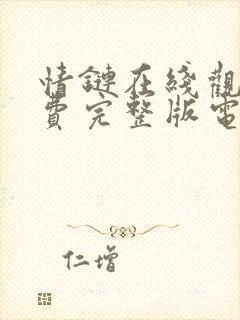 情鏈在綫觀
費完整版電
仁增